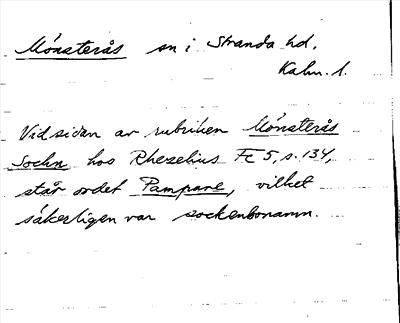 Mönsterås sn i Stranda hd.
Kalm. l.
Vid sidan av rubriken Mönsterås
Sochn hos Rhezelius Fc 5, s. 134,
står ordet Pampare, vilket
säkerligen var sockenbonamn.